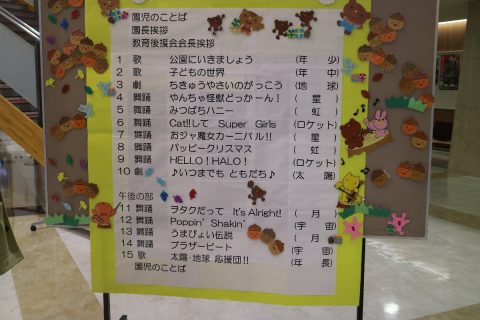 園児のことば
園長挨拶
教育後援会会長挨拶
1 歌 公園にいきましょう (年 少)
2 歌 子どもの世界 (年 中)
3 劇 ちきゅうやさいのがっこう (地 球)
4 舞踊 やんちゃ怪獣どっかーん! (星)
5 舞踊 みつばちハニー (虹)
6 舞踊 Cat!!して Super Girls (ロケット)
7 舞踊 おジャ魔女カーニバル!! (星)
8 舞踊 ハッピークリスマス (虹)
9 舞踊 HELLO!HALO! (ロケット)
10 劇 ♪いつまでも ともだち♪ (太 陽)
午後の部
11 舞踊 ヲタクだって It's Alright! (月)
12 舞踊 Poppin' Shakin' (宇 宙)
13 舞踊 うまぴょい伝説 (月)
14 舞踊 ブラザービート (宇 宙)
15 歌 太陽・地球 応援団!! (年 長)
園児のことば